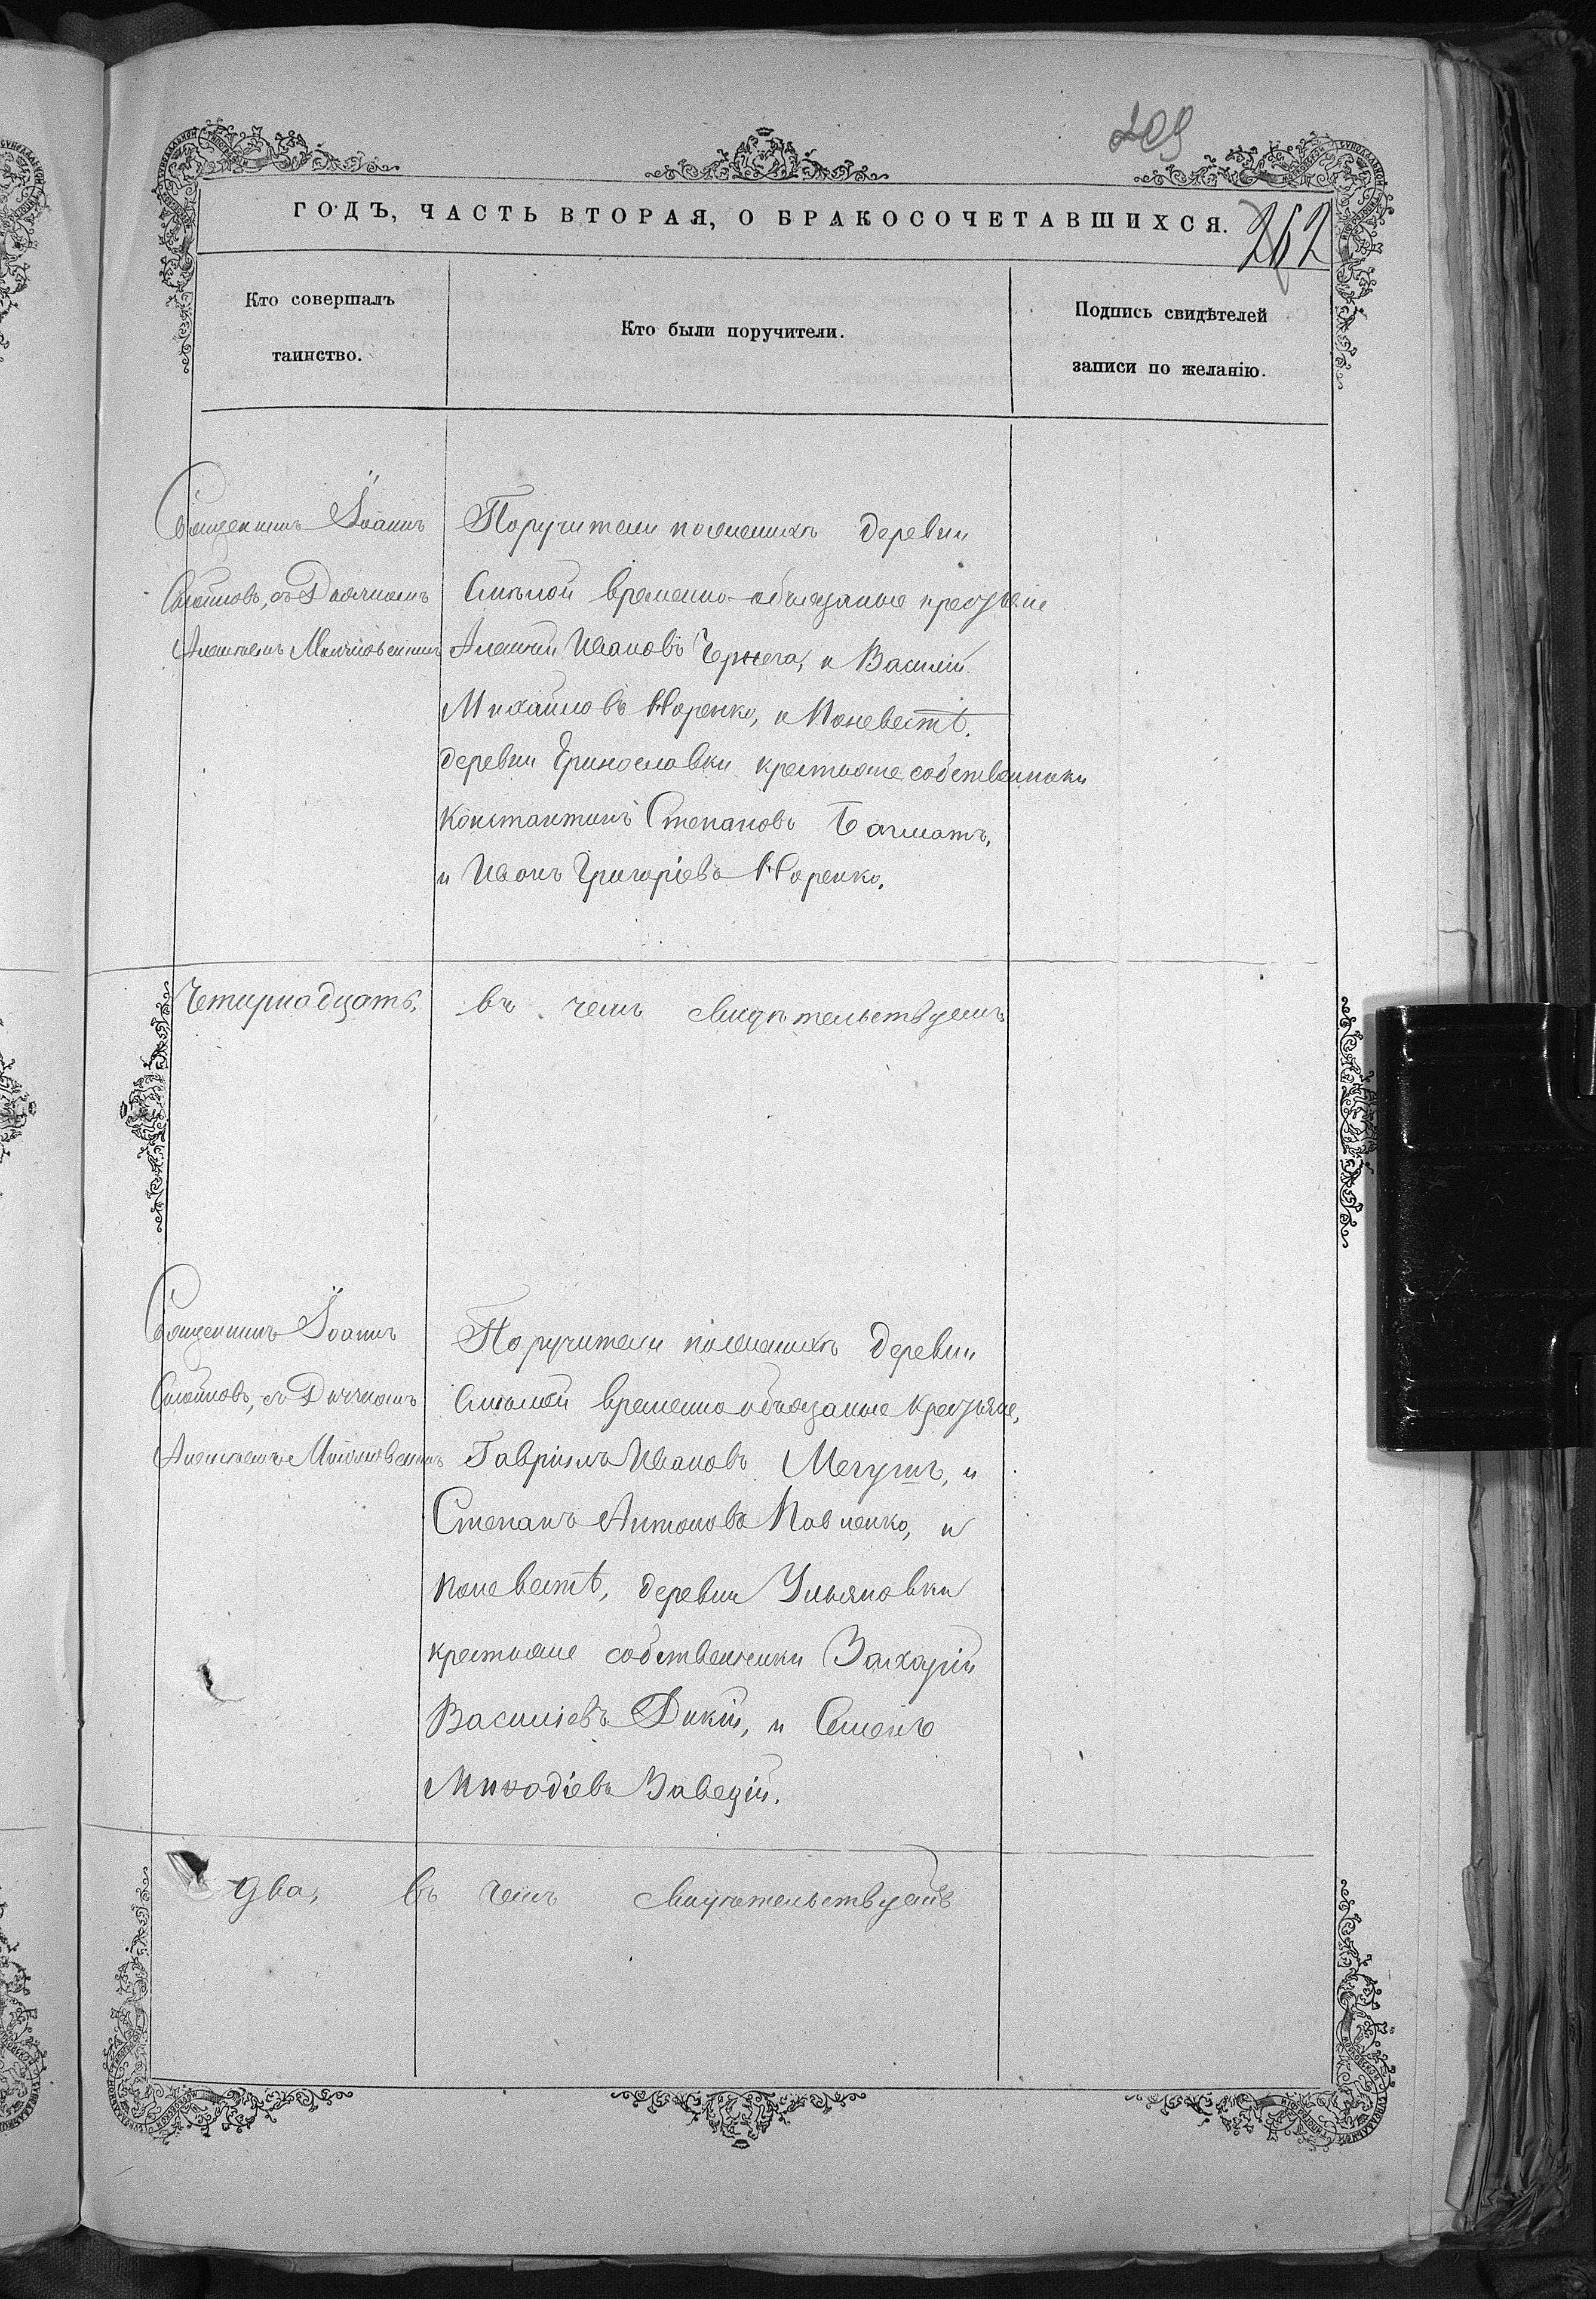 209
ГОДЪ, ЧАСТЬ ВТОРАЯ, О БРАКОСОЧЕТАВШИХСЯ.
262
Кто совершалъ
таинство.
Кто были поручители.
Подпись свидѣтелей
записи по желанію.
Священникъ Іоаннъ
съ Дьячкомъ
Алексѣемъ
Поручители по женихѣ деревни
временно-обязаные крестьяне
Алексѣй Ивановъ Чернега, и Василій
Михайловъ Норенко, и По невестѣ.
деревни крестьяне собственники
Константинъ Степановъ Бачматъ,
и Иванъ Григоріевъ Норенко.
Четырнадцать,
въ чемъ свидѣтельствуемъ
Священникъ Іоаннъ
съ Дьячкомъ
Алексѣемъ
Поручители по женихѣ деревни
временно обязаные крестьяне,
Гавріилъ Ивановъ и
Степанъ Антоновъ Павленко, и
по невестѣ, деревни Ульяновки
крестьяне собственники Захарій
Василіевъ Дикій, и Семенъ
Два,
въ чемъ свидѣтельствуемъ